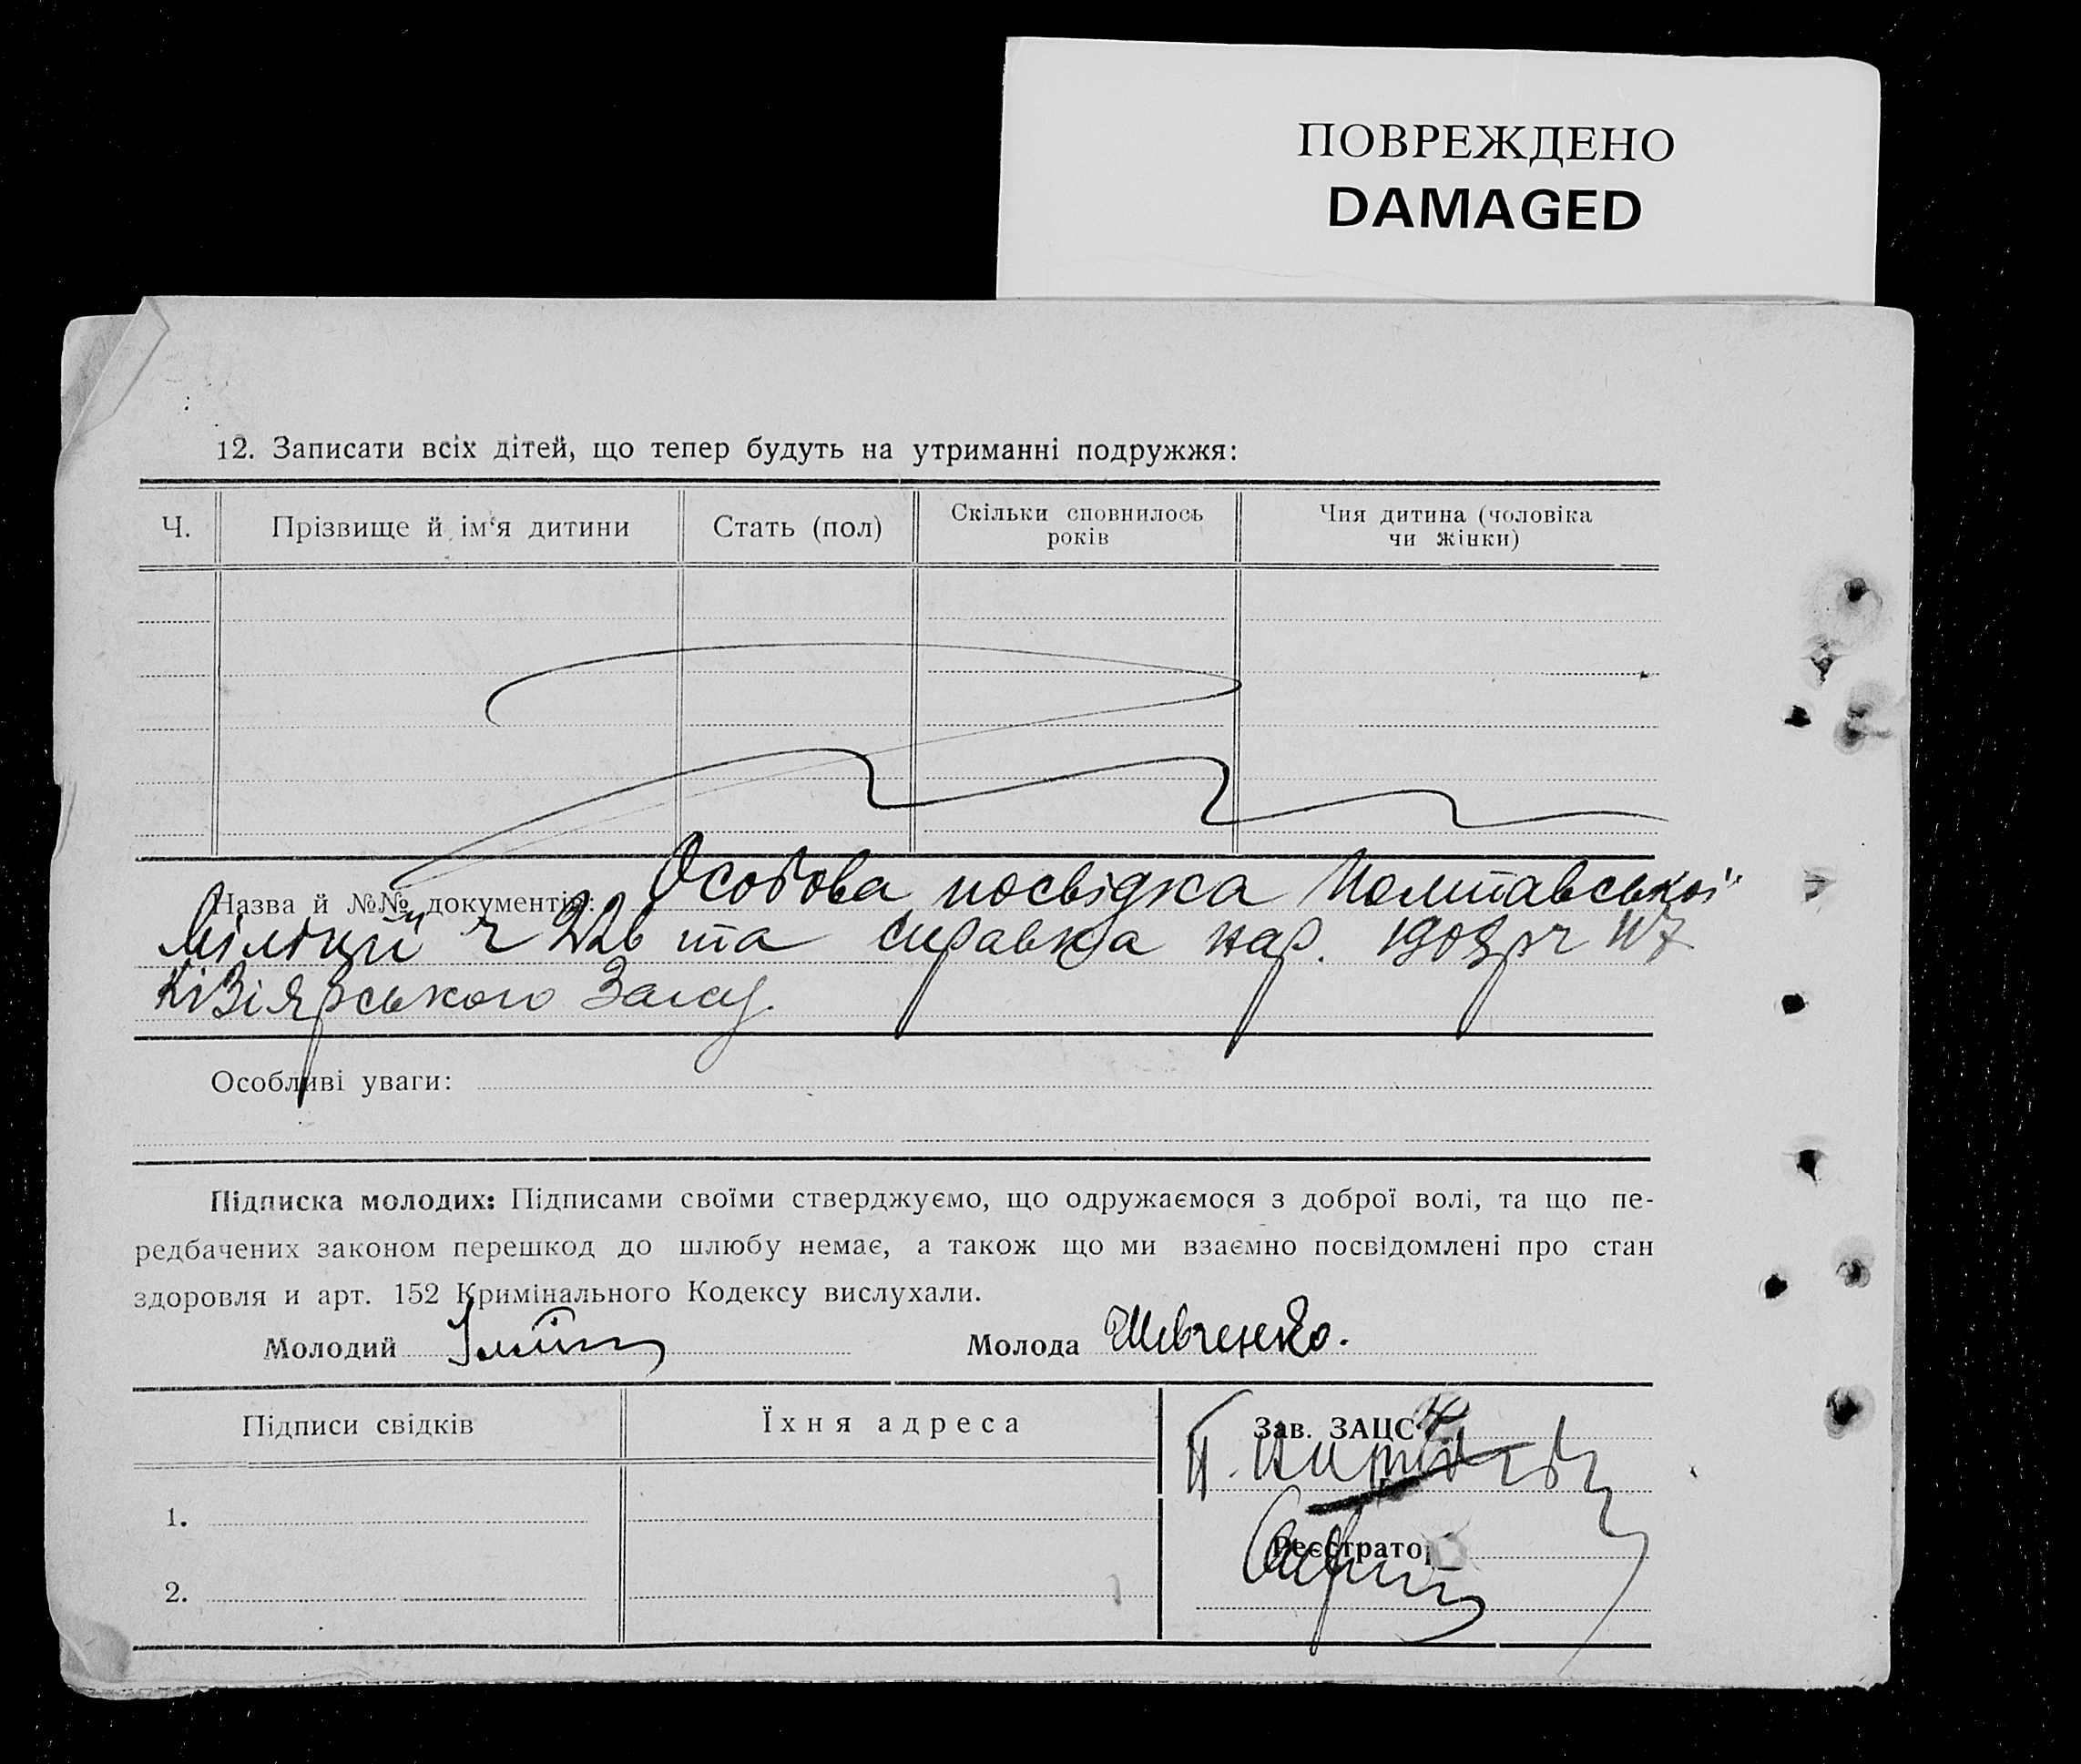 ПОВРЕЖДЕНО
DAMAGED
12. Записати всіх дітей, що тепер будуть на утриманні подружжя:
Ч. Прізвище й ім'я дитини Стать (пол) Скільки сповнилось років Чия дитина (чоловіка чи жінки)
Назва й №№ документів: Особова посвідка Полтавської
Міліції ч 226 та справка нар. 1909 р ч 117
Кізіярського Загсу.
Особливі уваги:
Підписка молодих: Підписами своїми стверджуємо, що одружаємося з доброї волі, та що пе-
редбачених законом перешкод до шлюбу немає, а також що ми взаємно посвідомлені про стан
здоровля и арт. 152 Кримінального Кодексу вислухали.
Молодий Молода Шевченко.
Підписи свідків Їхня адреса Зав. ЗАЦС
1.
Реєстратор
2.